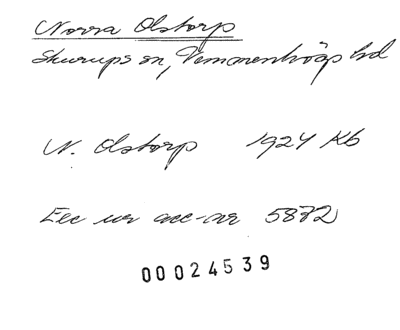 Norra Olstorp
Skurups sn, Vemmenhögs hd
N. Olstorp 1924 Kb
Exc ur acc-nr 5872
00024539